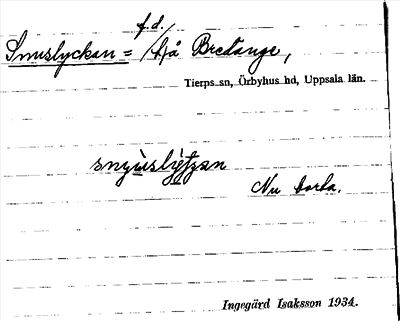 f.d.
Snuslyckan = / på Bredänge,
Tierps sn, Örbyhus hd, Uppsala län.
Nu borta.
Ingegärd Isaksson 1934.